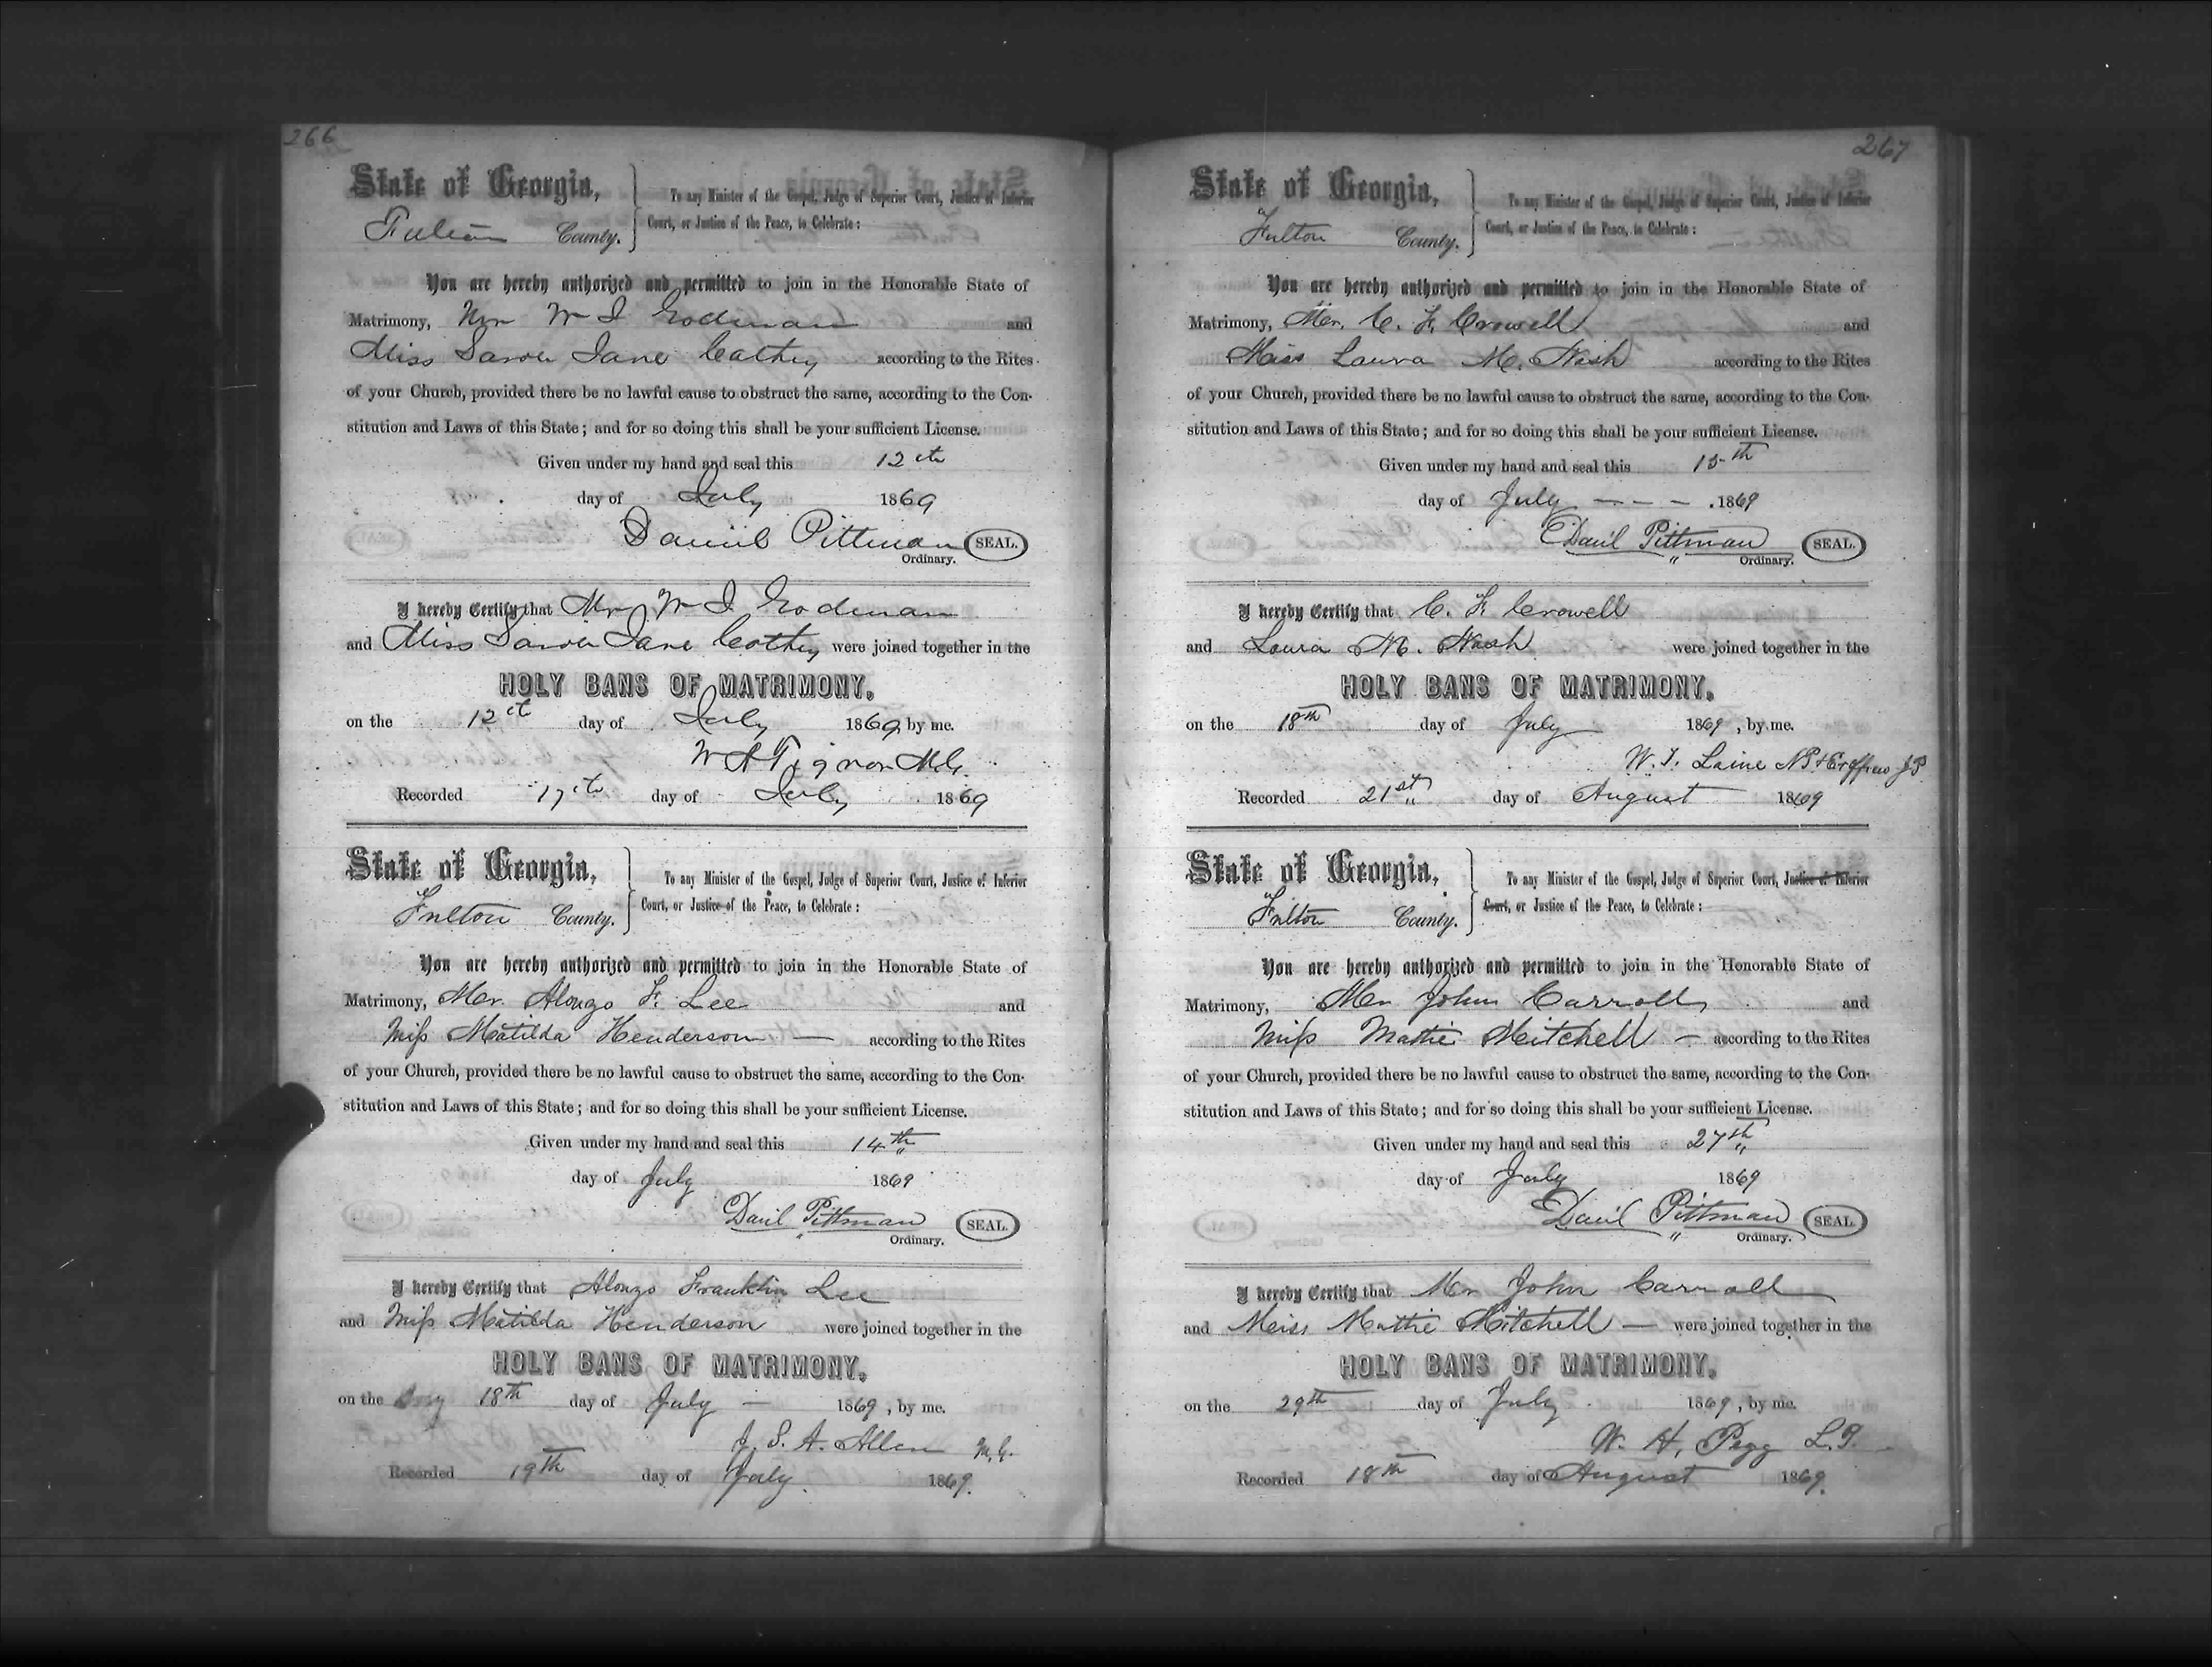 266
State of Georgia,
To any Minister of the Gospel, Judge of Superior Court, Justice of Inferior
County.
Court, or Justice of the Peace, to Celebrate:
You are hereby authorized and permitted to join in the Honorable State of
Matrimony, Mr Wm I and
Miss Jane Cathey according to the Rites
of your Church, provided there be no lawful cause to obstruct the same, according to the Con-
stitution and Laws of this State; and for so doing this shall be your sufficient License.
Given under my hand and seal this 12th
day of July 1869
Daniel Pittman SEAL.
Ordinary.
I hereby Certify that Mr Wm I
and Miss Jane Cathey were joined together in the
HOLY BANS OF MATRIMONY,
on the 12th day of July 1869, by me.
M.G.
Recorded 17th day of July 1869
State of Georgia,
To any Minister of the Gospel, Judge of Superior Court, Justice of Inferior
Fulton County.
Court, or Justice of the Peace, to Celebrate:
You are hereby authorized and permitted to join in the Honorable State of
Matrimony, Mr. Alonzo F. Lee and
Miss Matilda Henderson — according to the Rites
of your Church, provided there be no lawful cause to obstruct the same, according to the Con-
stitution and Laws of this State; and for so doing this shall be your sufficient License.
Given under my hand and seal this 14th
day of July 1869
Danil Pittman SEAL.
Ordinary.
I hereby Certify that Alonzo Franklin Lee
and Miss Matilda Henderson were joined together in the
HOLY BANS OF MATRIMONY,
on the 18th day of July — 1869, by me.
J. S. A. Allen M.G.
Recorded 19th day of July. 1869.
267
State of Georgia,
To any Minister of the Gospel, Judge of Superior Court, Justice of Inferior
Fulton County.
Court, or Justice of the Peace, to Celebrate:
You are hereby authorized and permitted to join in the Honorable State of
Matrimony, Mr. C. F. Crowell and
Miss Laura M. Nash according to the Rites
of your Church, provided there be no lawful cause to obstruct the same, according to the Con-
stitution and Laws of this State; and for so doing this shall be your sufficient License.
Given under my hand and seal this 15th
day of July — — — 1869
Danil Pittman SEAL.
Ordinary.
I hereby Certify that C. F. Crowell
and Laura M. Nash were joined together in the
HOLY BANS OF MATRIMONY,
on the 18th day of July 1869, by me.
W. T. Laine NP & Exofficio JP
Recorded 21st day of August 1869
State of Georgia,
To any Minister of the Gospel, Judge of Superior Court, Justice of Inferior
Fulton County.
Court, or Justice of the Peace, to Celebrate:
You are hereby authorized and permitted to join in the Honorable State of
Matrimony, Mr John Carroll and
Miss Mattie Mitchell — according to the Rites
of your Church, provided there be no lawful cause to obstruct the same, according to the Con-
stitution and Laws of this State; and for so doing this shall be your sufficient License.
Given under my hand and seal this 27th
day of July 1869
Danil Pittman SEAL.
Ordinary.
I hereby Certify that Mr John Carroll
and Miss Mattie Mitchell — were joined together in the
HOLY BANS OF MATRIMONY,
on the 29th day of July 1869, by me.
W. H. Pegg L.P.
Recorded 18th day of August 1869.